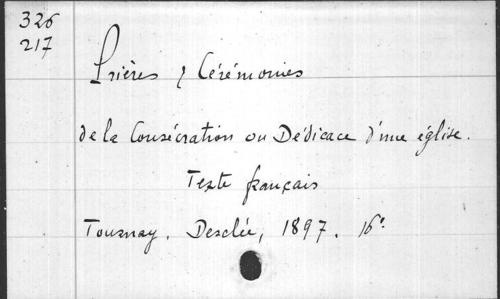 326
217
Prières & Cérémonies
de la Consécration ou Dédicace d'une église.
Texte français
Tournay. Desclée, 1897. 16°